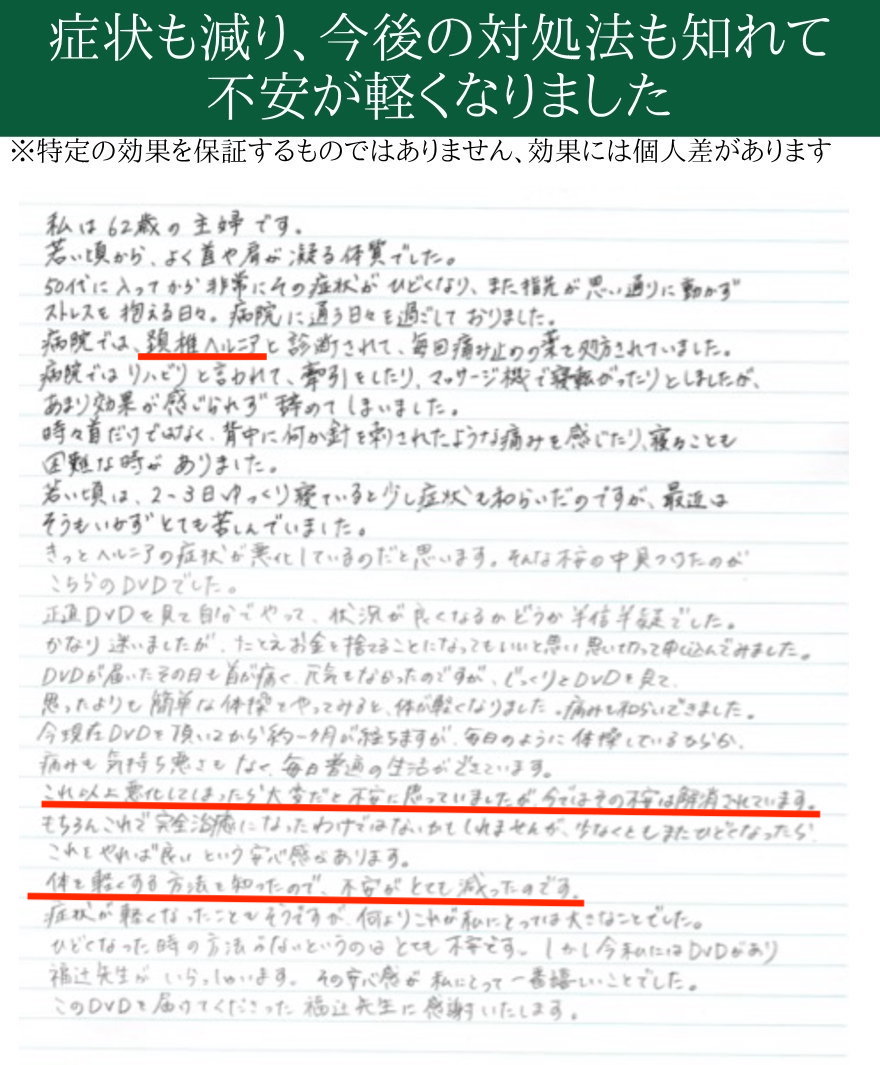 症状も減り、今後の対処法も知れて
不安が軽くなりました
※特定の効果を保証するものではありません、効果には個人差があります
私は62歳の主婦です。
若い頃から、よく首や肩が凝る体質でした。
50代に入ってから非常にその症状がひどくなり、また指先が思い通りに動かず
ストレスを抱える日々。病院に通う日々を過ごしておりました。
病院では、頚椎ヘルニアと診断されて、毎回痛み止めの薬を処方されていました。
病院ではリハビリと言われて、牽引をしたり、マッサージ機で寝転がったりとしましたが、
あまり効果が感じられず辞めてしまいました。
時々首だけではなく、背中に何か針を刺されたような痛みを感じたり、寝ることも
困難な時がありました。
若い頃は、2~3日ゆっくり寝ていると少し症状も和らいだのですが、最近は
そうもいかずとても苦しんでいました。
きっとヘルニアの症状が悪化しているのだと思います。そんな不安の中見つけたのが
こちらのDVDでした。
正直DVDを見て自分でやって、状況が良くなるかどうか半信半疑でした。
かなり迷いましたが、たとえお金を捨てることになってもいいと思い思い切って申し込んでみました。
DVDが届いたその日も首が痛く、元気もなかったのですが、じっくりとDVDを見て、
思ったよりも簡単な体操をやってみると、体が軽くなりました。痛みも和らいできました。
今現在DVDを頂いてから約一ヶ月が経ちますが、毎日のように体操しているからか、
痛みも気持ち悪さもなく、毎日普通の生活ができています。
これ以上悪化してしまったら大変だと不安に思っていましたが、今ではその不安は解消されています。
もちろんこれで完全治癒になったわけではないかもしれませんが、少なくともまたひどくなったら、
これをやれば良いという安心感があります。
体を軽くする方法を知ったので、不安がとても減ったのです。
症状が軽くなったこともそうですが、何よりこれが私にとっては大きなことでした。
ひどくなった時の方法がないというのはとても不安です。しかし今私にはDVDがあり
福辻先生がいらっしゃいます。その安心感が私にとって一番嬉しいことでした。
このDVDを届けてくださった福辻先生に感謝いたします。